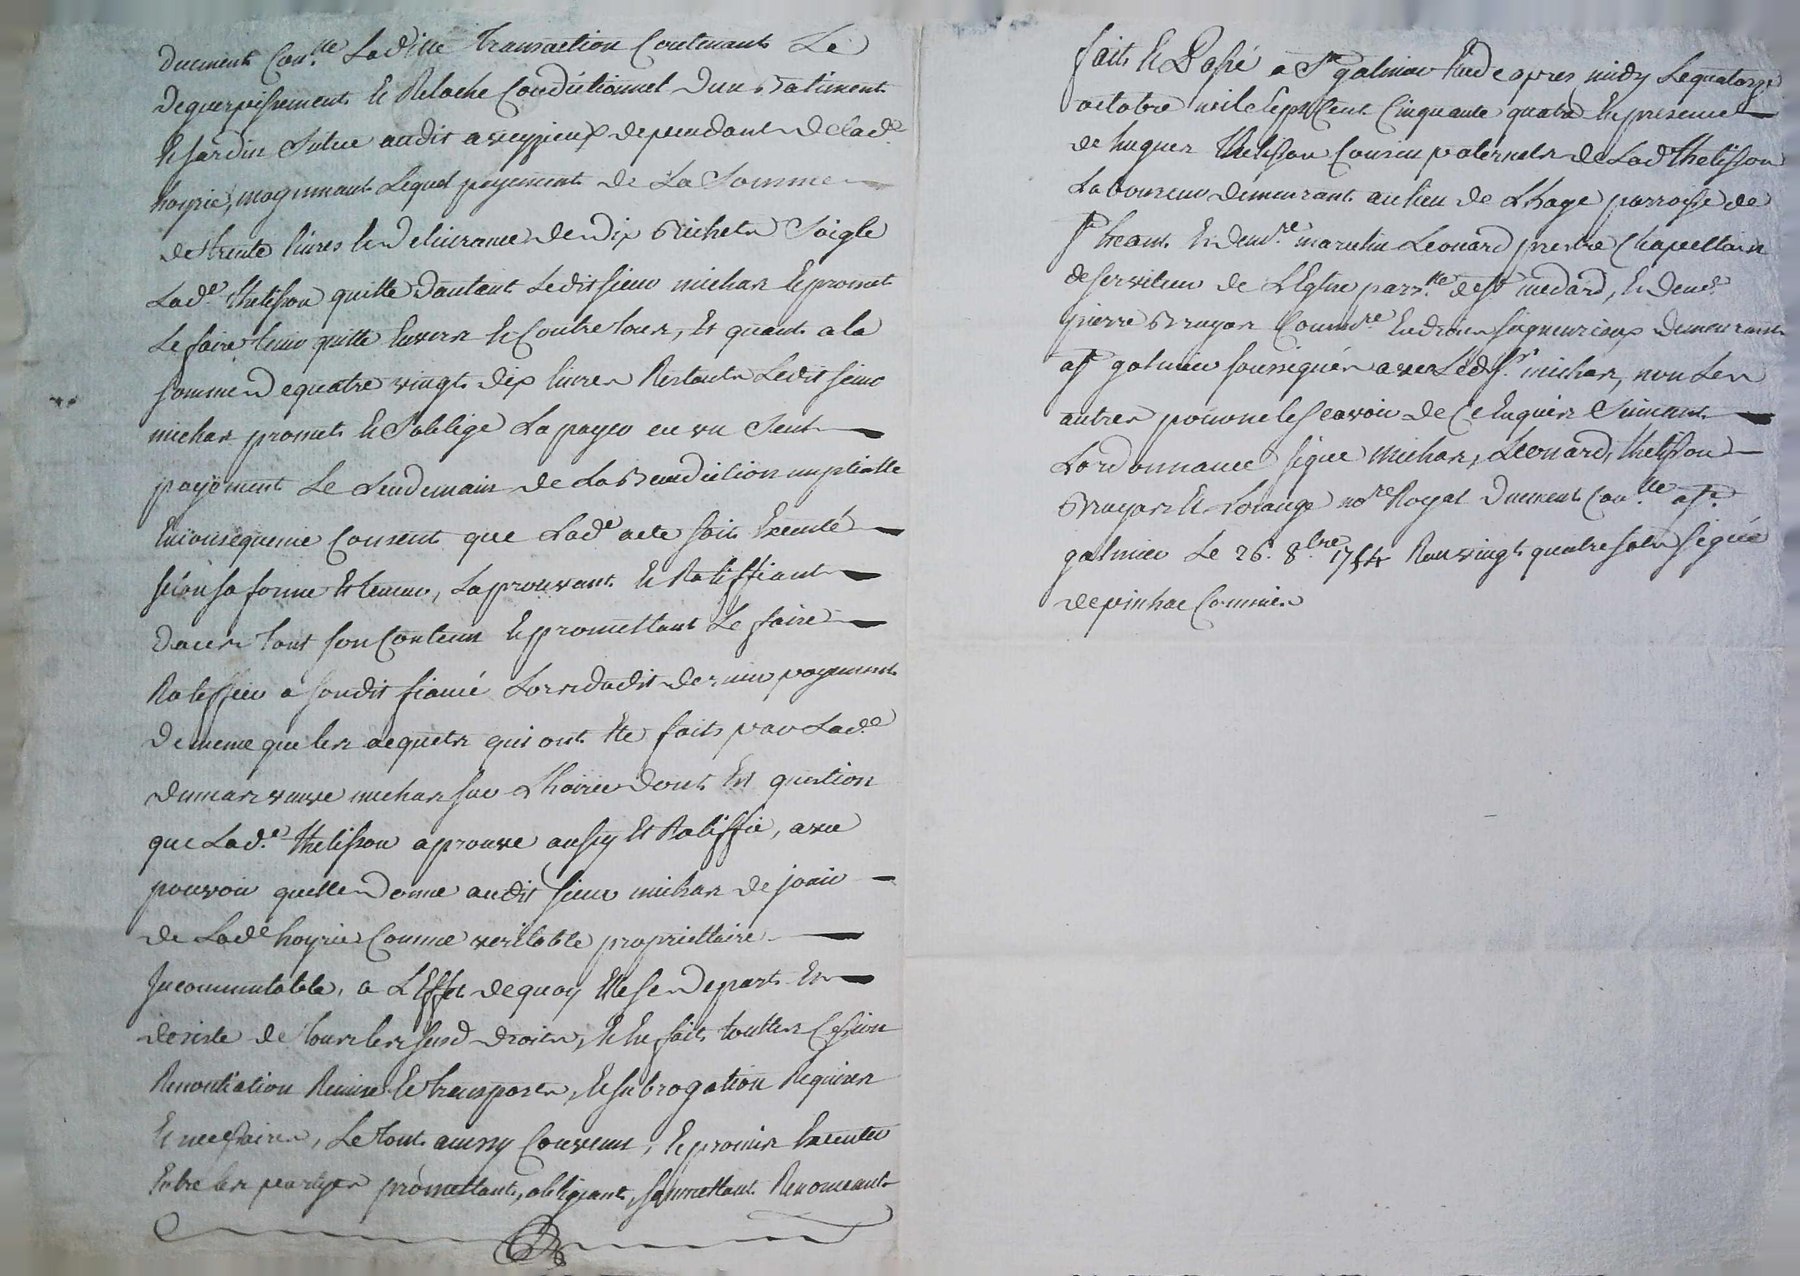 duement Con.lle Laditte transaction Contenant Le
deguerpissement et Relache Conditionnel d'un Batiment
et jardin Situé audit aveyzieux dependant de lad.e
hoyrie, moyennant Lequel payement de La Somme
de trente livres et delivrance de dix Bichets Soigle
Lad.e thelisson quitte d'autant Ledit sieur michas et promet
Le faire tenir quitte Envers et Contre tous, Et quant a la
somme de quatre vingt dix livres Restants Ledit sieur
michas promet et S'oblige La payer en un Seul
payement Le Lendemain de La Benediction nuptialle
En Consequence Consent que Lad.e acte soit Executé
selon sa forme Et teneur, L'aprouvant et Ratiffiant
dans tout son Contenu et promettant Le faire
Ratiffier a sondit fiancé Lors dudit dernier payement
de meme que les acquets qui ont Eté faits par Lad.e
dumas veuve michas sur L'hoirie dont Est question
que Lad.e thelisson aprouve aussy Et Ratiffie, avec
pouvoir quelle donne audit sieur michas de jouir
de Lad.e hoyrie Comme veritable proprietaire
Incommutable, a L'Effet de quoy Elle se depart Et
desiste de tous les susd droits, et En fait touttes Cession
Renontiation Remise et transports, et subrogation Requises
Et necessaires, Le tout ainsy Convenu, et promis Executer
Entre les partyes promettant, obligeant, soumettant Renonceant
fait et Passé a St galmier Etude apres midy Le quatorze
octobre mil sept Cent Cinquante quatre En presence
de hugues thelisson Cousin paternel de Lad.e thelisson
Laboureur demeurant au lieu de L'hage parroisse de
St heant Et de m.re Leonard prestre Chapellain
deserviteur de L'Eglise parr.lle de St medard, Et de
pierre Bruyas Comm.re En droits seigneuriaux demeurant
a St galmier soussignés avec Led. Sr michas, non Les
autres pour ne le sçavoir de Ce Enquis Suivant
L'ordonnance signé michas, Leonard, thelisson
Bruyas Et Lorange no.re Royal duement Con.lle a St
galmier Le 26. 8.bre 1754 Reçu vingt quatre sols signé
depinhac Commis